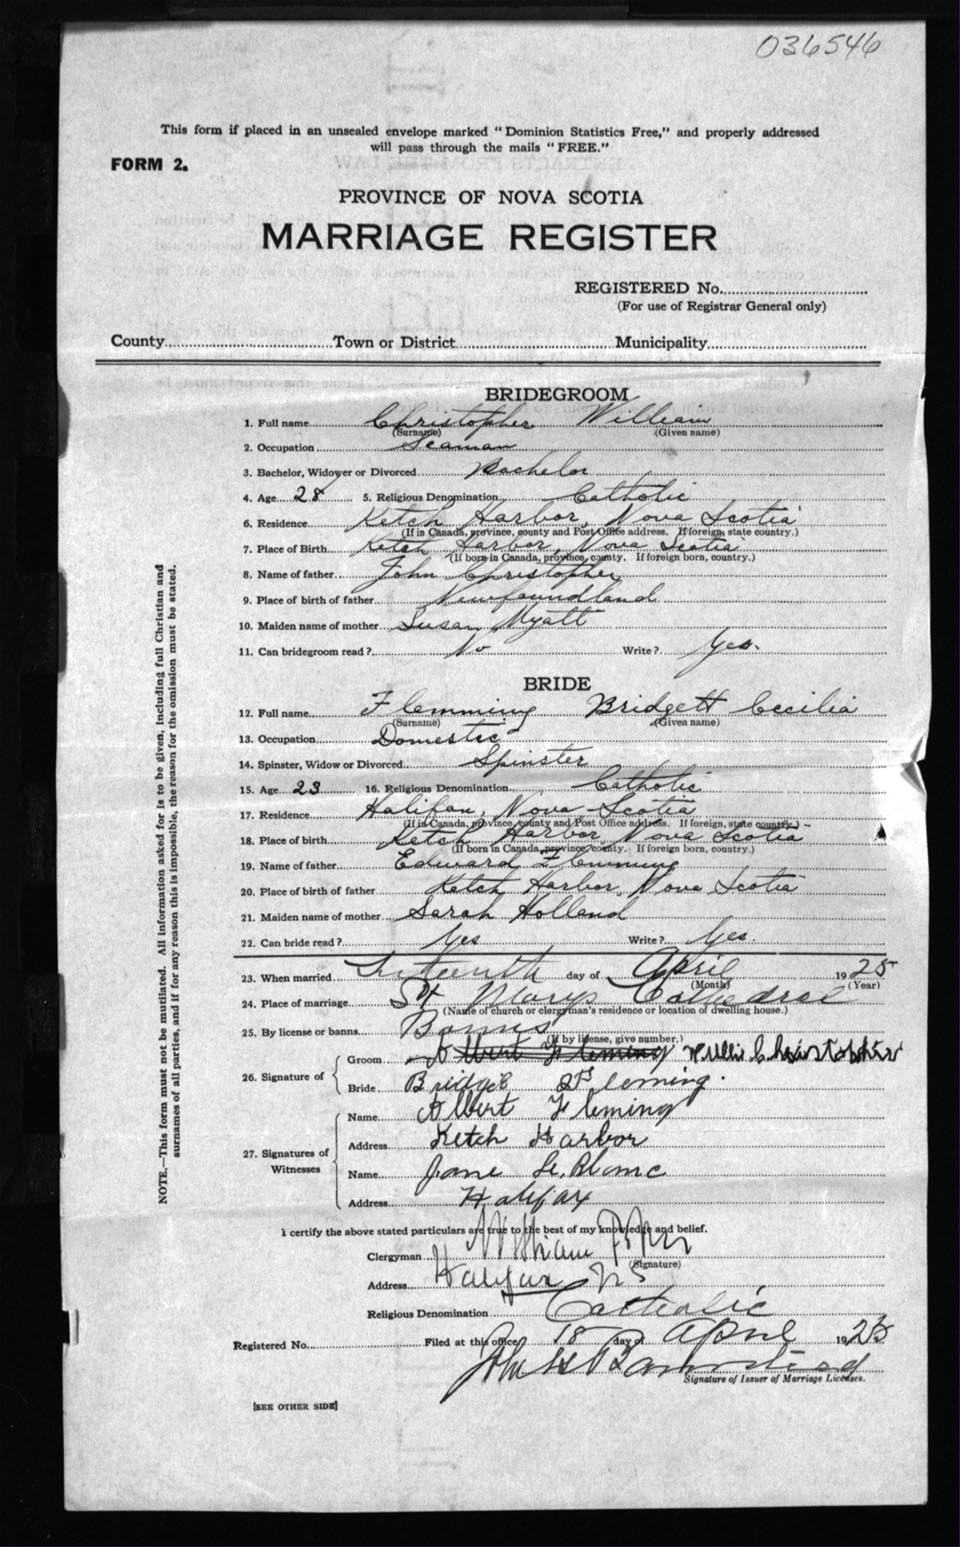 036546
This form if placed in an unsealed envelope marked "Dominion Statistics Free," and properly addressed
will pass through the mails "FREE."
FORM 2.
PROVINCE OF NOVA SCOTIA
MARRIAGE REGISTER
REGISTERED No.
(For use of Registrar General only)
County Town or District Municipality
BRIDEGROOM
1. Full name Christopher William
(Surname) (Given name)
2. Occupation Seaman
3. Bachelor, Widower or Divorced Bachelor
4. Age 28 5. Religious Denomination Catholic
6. Residence Ketch Harbor, Nova Scotia
(If in Canada, province, county and Post Office address. If foreign, state country.)
7. Place of Birth Ketch Harbor, Nova Scotia
(If born in Canada, province, county. If foreign born, country.)
8. Name of father John Christopher
9. Place of birth of father Newfoundland
10. Maiden name of mother Susan Myatt
11. Can bridegroom read? No Write? Yes.
BRIDE
12. Full name Flemming Bridgett Cecilia
(Surname) (Given name)
13. Occupation Domestic
14. Spinster, Widow or Divorced Spinster
15. Age 23 16. Religious Denomination Catholic
17. Residence Halifax, Nova Scotia
(If in Canada, province, county and Post Office address. If foreign, state country.)
18. Place of birth Ketch Harbor, Nova Scotia
(If born in Canada, province, county. If foreign born, country.)
19. Name of father Edward Flemming
20. Place of birth of father Ketch Harbor, Nova Scotia
21. Maiden name of mother Sarah Holland
22. Can bride read? Yes Write? Yes.
23. When married day of April 1925
(Month) (Year)
24. Place of marriage St Marys Cathedral
(Name of church or clergyman's residence or location of dwelling house.)
25. By license or banns Banns
(If by license, give number.)
26. Signature of
Groom Albert Fleming Willie Christopher
Bride Fleming.
27. Signatures of Witnesses
Name Albert Fleming
Address Ketch Harbor
Name Jane Le Blanc
Address Halifax
I certify the above stated particulars are true to the best of my knowledge and belief.
Clergyman William
(Signature)
Address Halifax N S
Religious Denomination Catholic
Registered No. Filed at this office 18 day of April 1925
Signature of Issuer of Marriage Licenses.
[SEE OTHER SIDE]
NOTE.—This form must not be mutilated. All information asked for is to be given, including full Christian and
surnames of all parties, and if for any reason this is impossible, the reason for the omission must be stated.